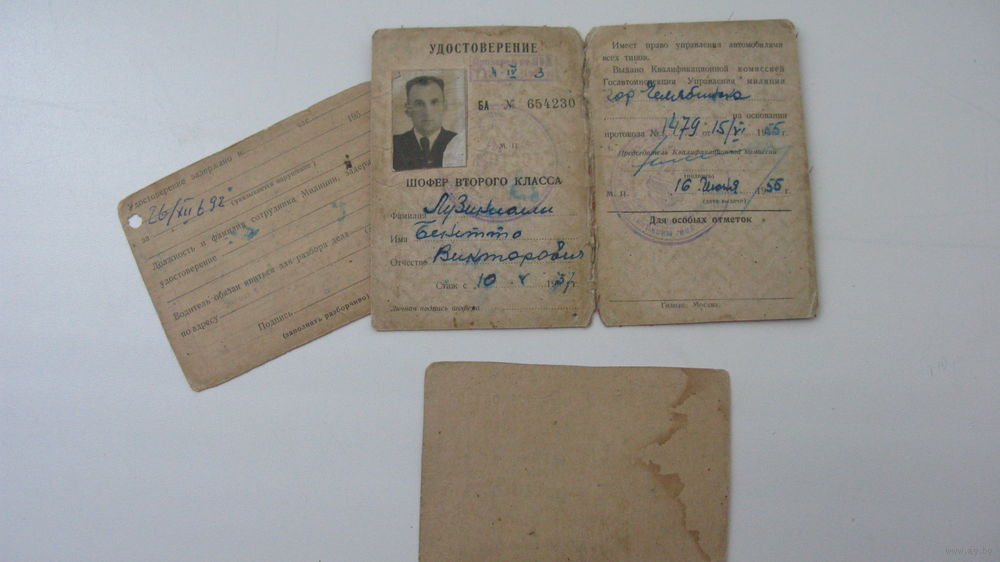 Удостоверение задержано в
час. 195
за 26/XII 692
(указывается нарушение)
Должность и фамилия сотрудника Милиции, задер
удостоверение
Водитель обязан явиться для разбора дела
по адресу
Подпись
(заполнять разборчиво)
УДОСТОВЕРЕНИЕ
БА № 654230
М. П.
ШОФЕР ВТОРОГО КЛАССА
Фамилия
Имя
Отчество Викторович
Стаж с 10
Личная подпись шофера
Имеет право управления автомобилями
всех типов.
Выдано Квалификационной комиссией
Госавтоинспекции Управления милиции
гор Челябинска
на основания
протокола № 1479 от 15/VI 1955 г.
Председатель Квалификационной комиссии
(подпись)
М. П. 16 Июня 1955 г.
(дата выдачи)
Для особых отметок
Гознак. Москва.
www.ay.by